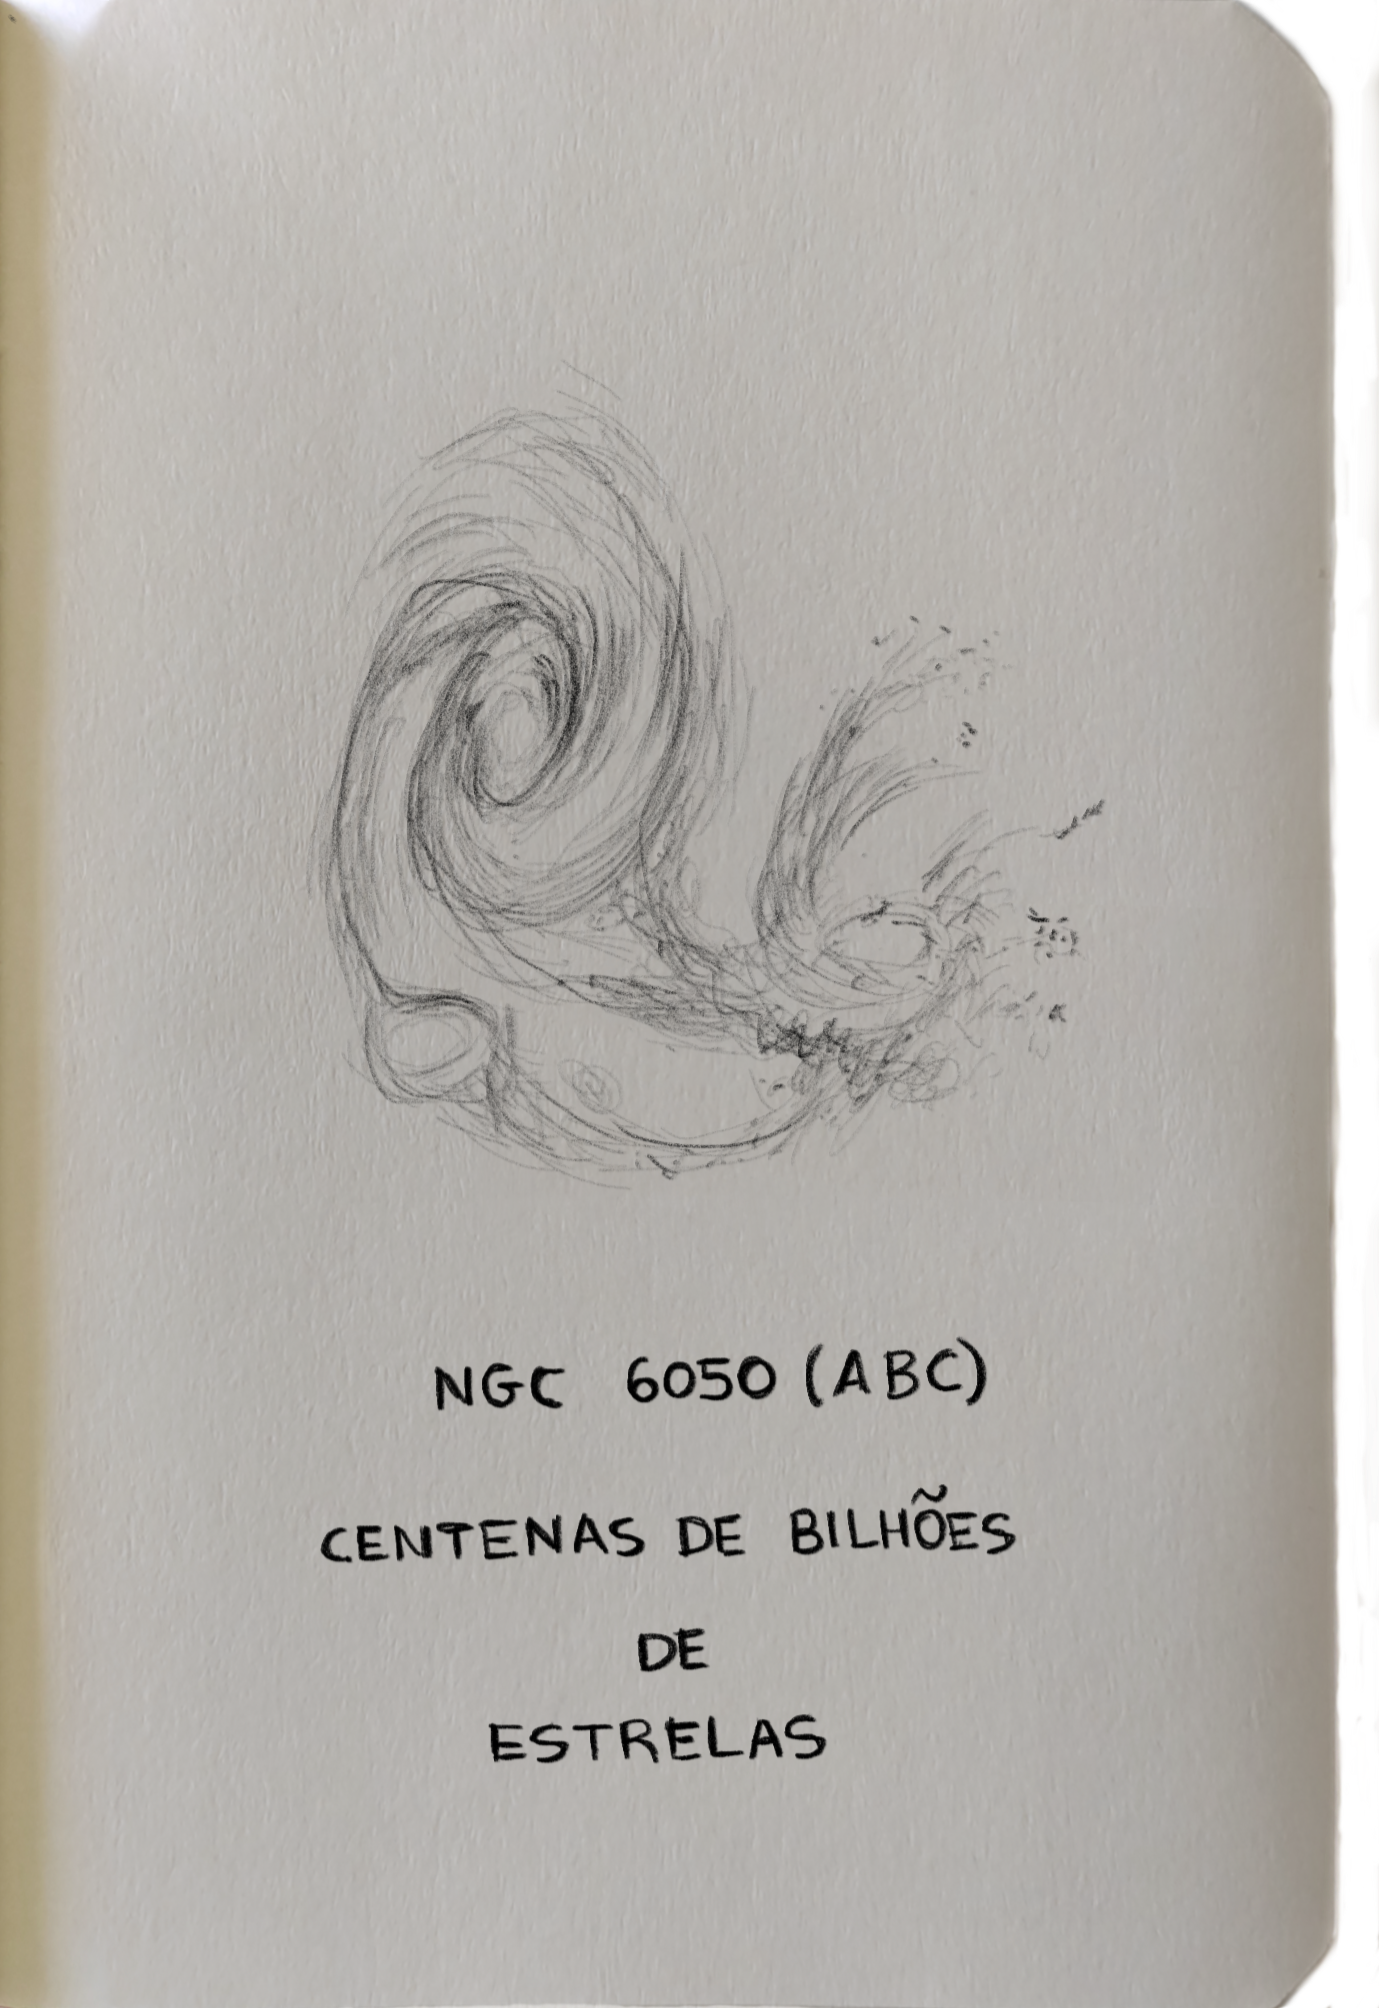 NGC 6050 (ABC)
CENTENAS DE BILHÕES
DE
ESTRELAS